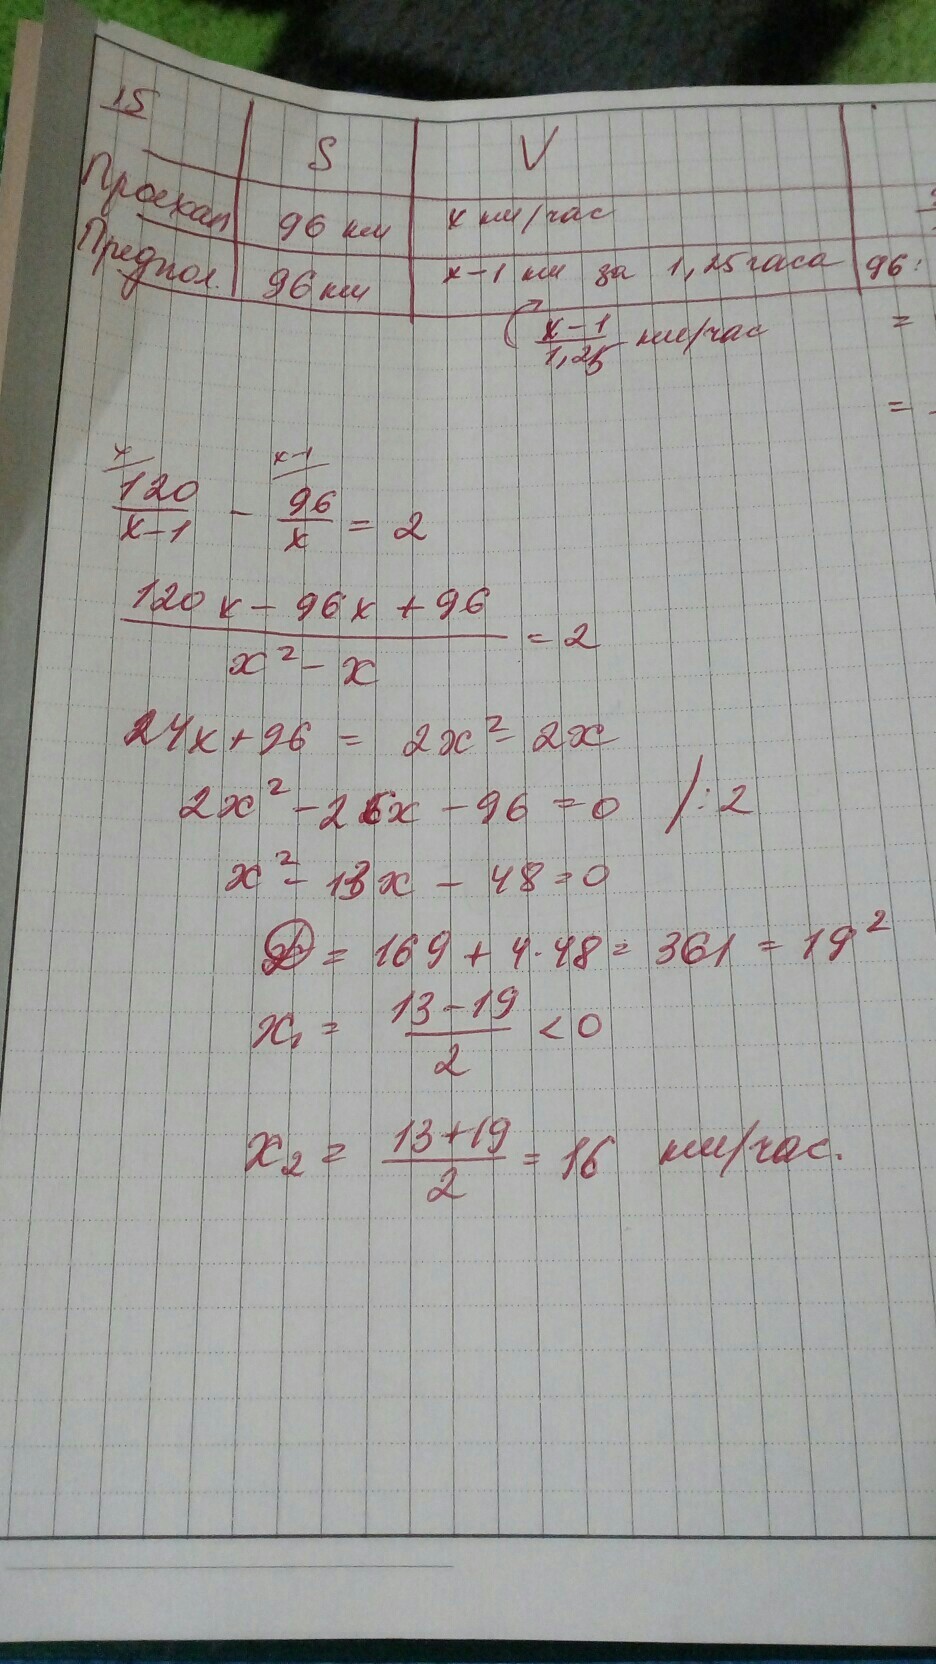 15
S V
Проехал 96 км x км/час
Предпол. 96 км x-1 км за 1,25 часа 96:
(x-1)/1,25 км/час =
=
x x-1
120/(x-1) - 96/x = 2
(120x - 96x + 96)/(x² - x) = 2
24x + 96 = 2x² - 2x
2x² - 26x - 96 = 0 /:2
x² - 13x - 48 = 0
D = 169 + 4·48 = 361 = 19²
x₁ = (13-19)/2 < 0
x₂ = (13+19)/2 = 16 км/час.